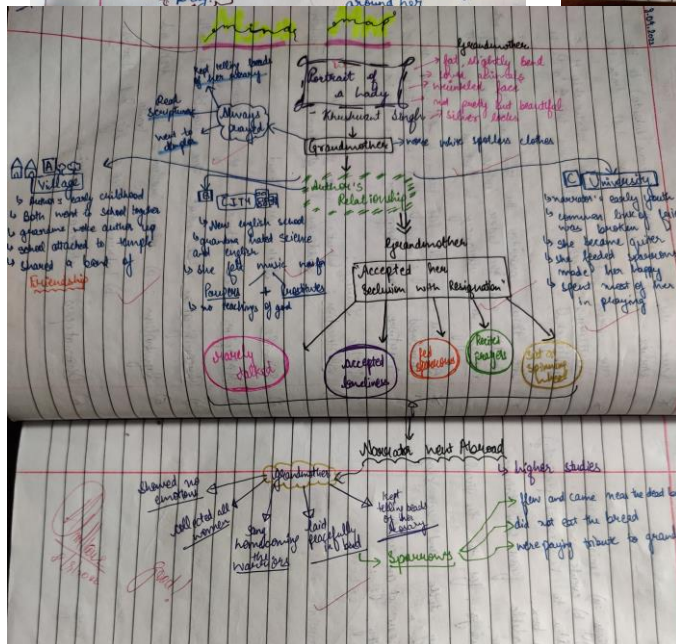 around her
Mind Map
Grandmother
fat, slightly bend
wrinkled face
not pretty but beautiful
silver locks
Portrait of
a Lady
- Khushwant Singh
kept telling beads
of her rosary
Read
Scriptures
went to
temples
Always
prayed
Grandmother
wore white spotless clothes
Author's
Relationship
A
Village
Author's early childhood
Both went to school together
grandma woke author up
school attached to temple
shared a bond of
Friendship
B
CITY
New english school
grandma hated science
and english
she felt music was for
+
no teachings of god
C
University
narrator's early youth
common link of
was broken
she became quiet
she feeded sparrows
made her happy
spent most of her
in praying
Grandmother
"Accepted her
Seclusion with Resignation"
Rarely
talked
Accepted
loneliness
fed
sparrows
Recited
prayers
Sat at
spinning
wheel
Narrator went Abroad
higher studies
Grandmother
showed no
emotions
collected all
women
sang
homecoming
the
warriors
laid
peacefully
in bed
kept
telling beads
of her
rosary
Sparrows
flew and came near the dead
did not eat the bread
were paying tribute to
Good!